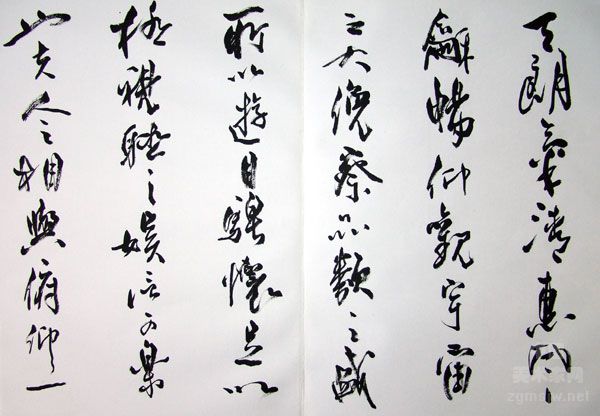 天朗氣清惠風
龢暢仰觀宇宙
之大俛察品類之盛
所以遊目騁懷足以
極視聽之娛信可樂
也夫人之相與俯仰一
美术家网